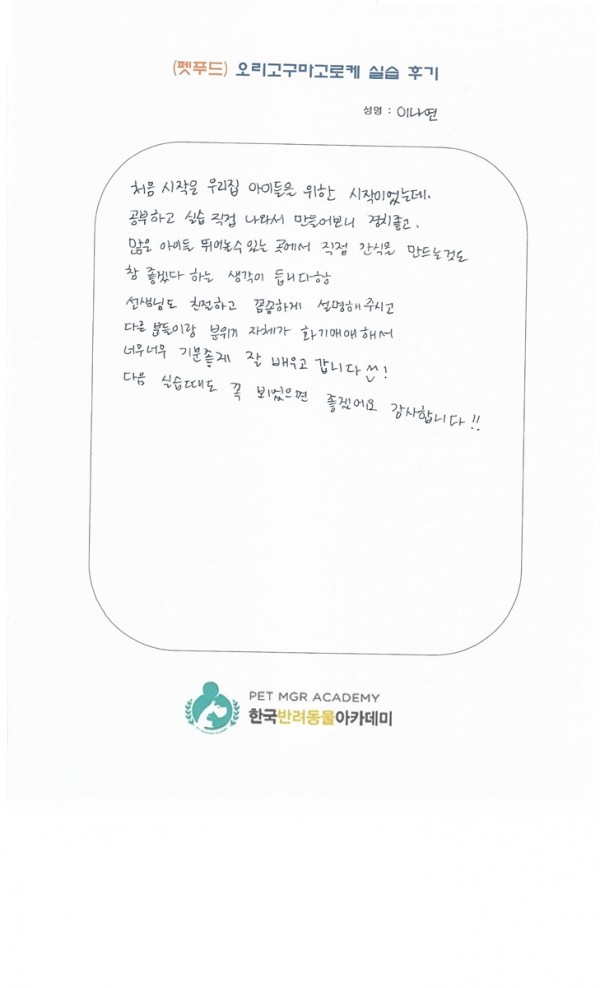 (펫푸드) 오리고구마고로케 실습 후기
성명 : 이나연
처음 시작은 우리집 아이들을 위한 시작이었는데.
공부하고 실습 직접 나와서 만들어보니 경치좋고.
많은 아이들 뛰어놀수있는 곳에서 직접 간식을 만드는것도
참 좋겠다 하는 생각이 듭니다항
선생님도 친절하고 꼼꼼하게 설명해주시고
다른 분들이랑 분위기 자체가 화기애애해서
너무너무 기분좋게 잘 배우고 갑니다 ^^!
다음 실습때도 꼭 뵈었으면 좋겠어요 감사합니다!!
PET MGR ACADEMY
한국반려동물아카데미